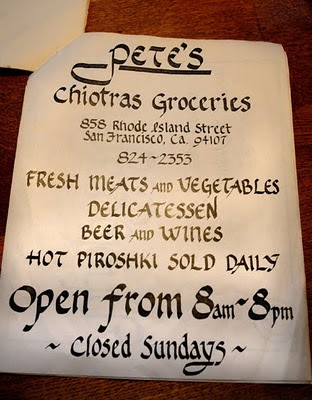 Pete's
Chiotras Groceries
858 Rhode Island Street
San Francisco, Ca. 94107
824~2353
FRESH MEATS AND VEGETABLES
DELICATESSEN
BEER AND WINES
HOT PIROSHKI SOLD DAILY
Open from 8am~8pm
~ Closed Sundays ~